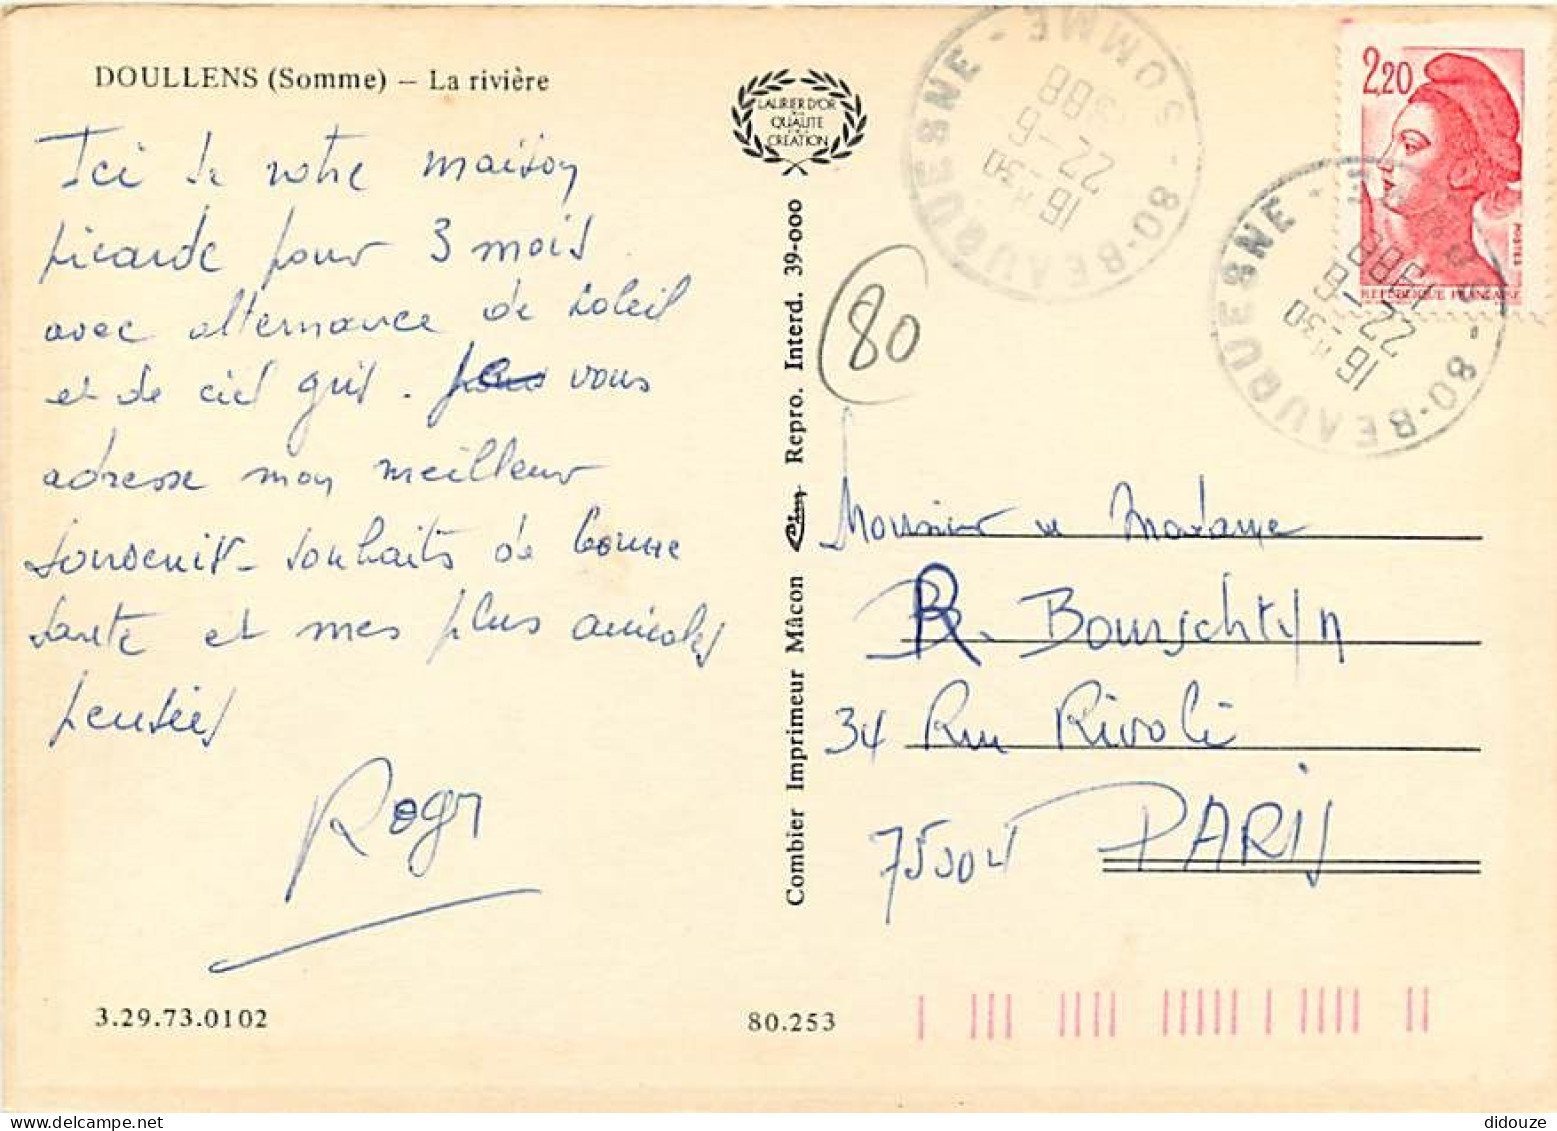 DOULLENS (Somme) — La rivière
Ici de notre maison
picarde pour 3 mois
avec alternance de soleil
et de ciel gris. vous
adresse mon meilleur
souvenir - souhaits de bonne
santé et mes plus amicales
pensées
Roger
3.29.73.0102
80.253
LAURIER D'OR
QUALITE
CREATION
Combier Imprimeur Mâcon Repro. Interd. 39-000
80
80-BEAUQUESNE - SOMME
16 H 30
22-6
1988
80-BEAUQUESNE - SOMME
16 H 30
22-6
1988
2,20
POSTES
REPUBLIQUE FRANÇAISE
Monsieur et Madame
R. Bourschtyn
34 Rue Rivoli
75004 PARIS
didouze